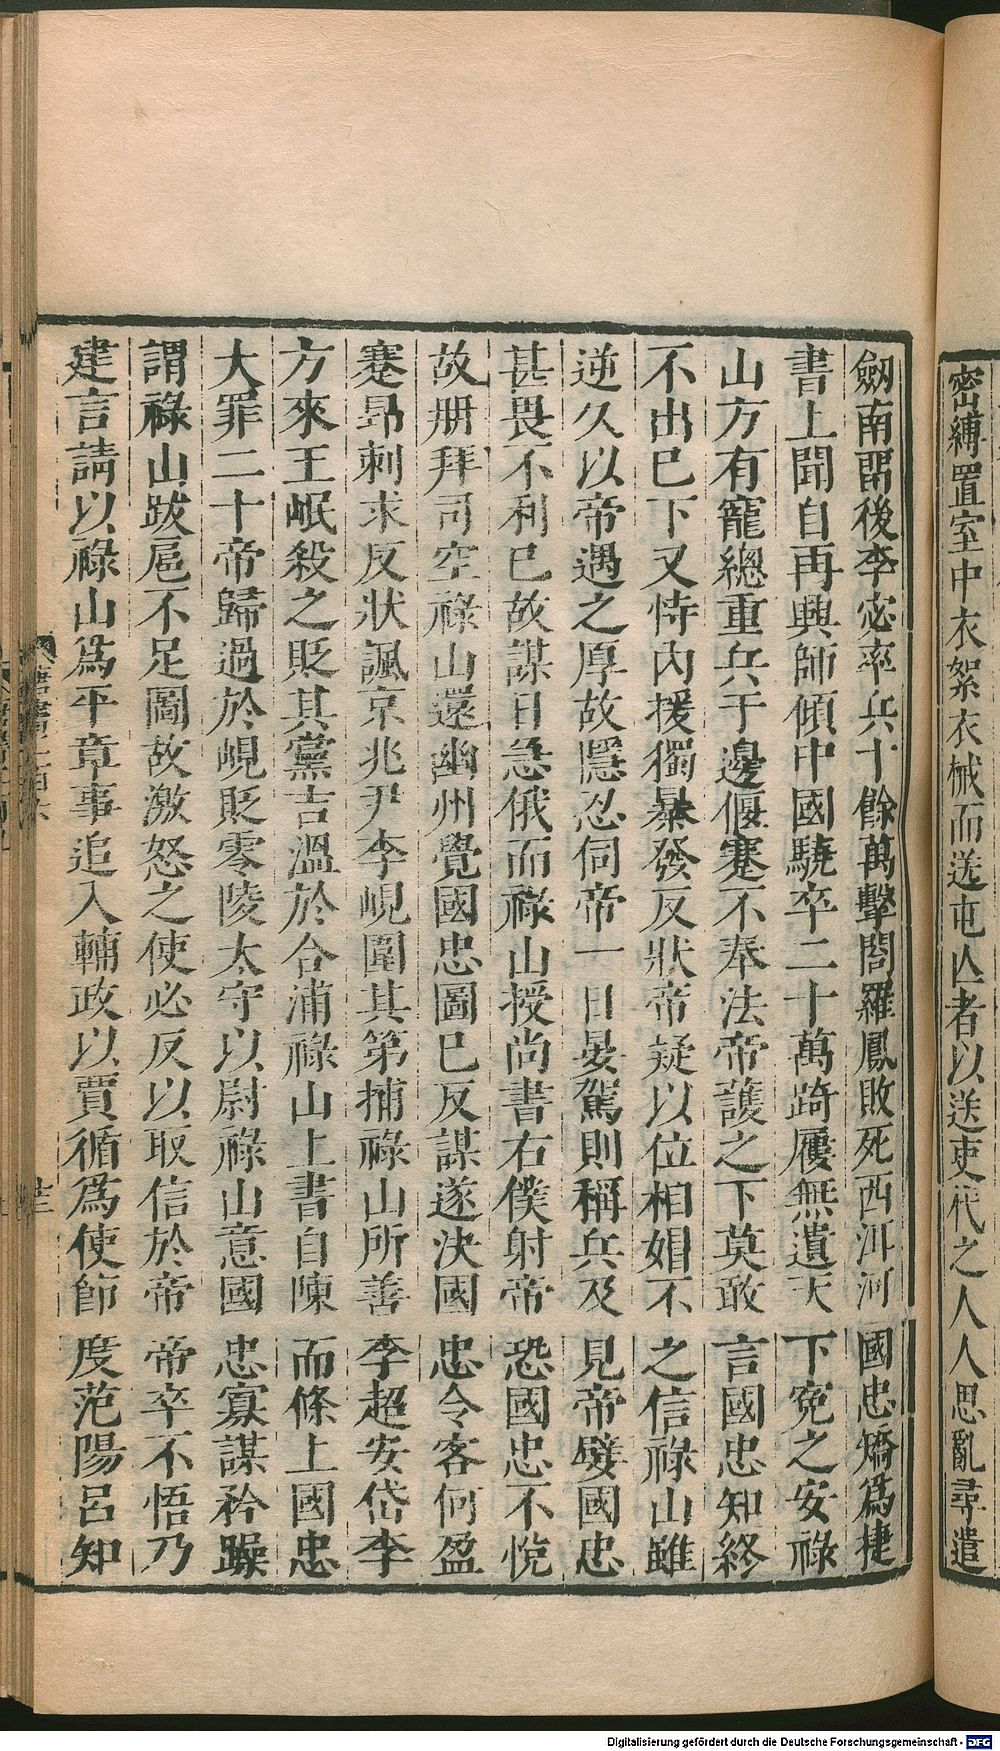 密縛置室中衣絮衣械而送屯亾者以送吏代之人人思亂尋遣
劔南留後李宓率兵十餘萬擊閤羅鳳敗死西洱河國忠矯爲捷
書上聞自再興師傾中國驍卒二十萬踦屨無遺天下寃之安祿
山方有寵總重兵于邊偃蹇不奉法帝護之下莫敢言國忠知終
不出巳下又恃內援獨暴發反狀帝疑以位相娼不之信祿山雖
逆久以帝遇之厚故隱忍伺帝一日晏駕則稱兵及見帝嬖國忠
甚畏不利巳故謀日急俄而祿山授尚書右僕射帝恐國忠不悅
故册拜司空祿山還幽州覺國忠圖巳反謀遂決國忠令客何盈
蹇昂刺求反狀諷京兆尹李峴圍其第捕祿山所善李超安岱李
方來王岷殺之貶其黨吉溫於合浦祿山上書自陳而條上國忠
大罪二十帝歸過於峴貶零陵太守以尉祿山意國忠寡謀矜躁
謂祿山跋扈不足圖故激怒之使必反以取信於帝帝卒不悟乃
建言請以祿山爲平章事追入輔政以賈循爲使節度范陽呂知
Digitalisierung gefördert durch die Deutsche Forschungsgemeinschaft - DFG